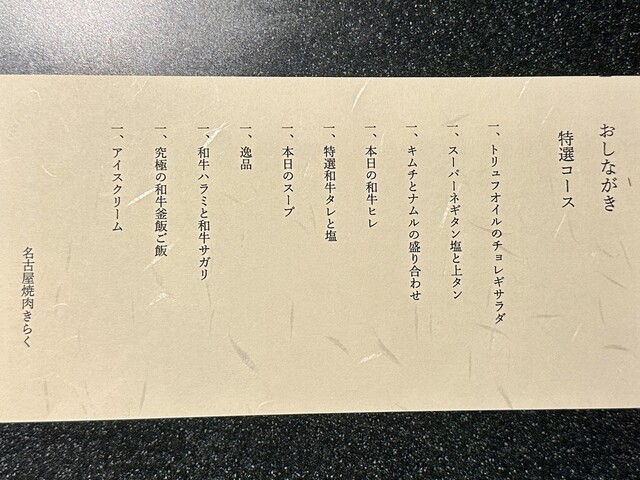 おしながき
特選コース
一、トリュフオイルのチョレギサラダ
一、スーパーネギタン塩と上タン
一、キムチとナムルの盛り合わせ
一、本日の和牛ヒレ
一、特選和牛タレと塩
一、本日のスープ
一、逸品
一、和牛ハラミと和牛サガリ
一、究極の和牛釜飯ご飯
一、アイスクリーム
名古屋焼肉きらく